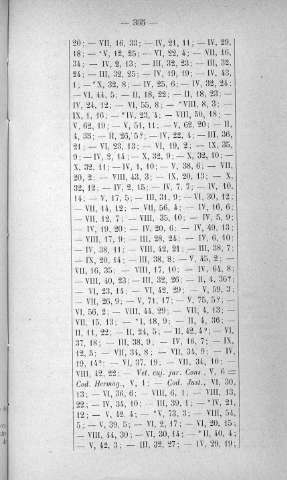 — 365 —
20; — VII, 16, 33; — IV, 21, 11; — IV, 29,
18; — *V, 12, 25; — VI, 22, 4; — VII, 16,
34; — IV, 2, 13; — III, 32, 23; — III, 32,
24; — III, 32, 25; — IV, 19, 19; — IV, 43,
1; — *X, 32, 8; — IV, 25, 6; — IV, 32, 24;
— VI, 44, 5; — II, 18, 22; — II, 18, 23; —
IV, 24, 12; — VI, 55, 8; — *VIII, 8, 3; —
IX, 1, 16; — *IV, 23, 4; — VIII, 50, 18; —
V, 62, 19; — V, 51, 11; — V, 62, 20; — II,
4, 35; — II, 26, 5?; — IV, 22, 4; — III, 36,
21; — VI, 23, 13; — VI, 19, 2; — IX, 35,
9; — IV, 2, 14; — X, 32, 9; — X, 32, 10; —
X, 32, 11; — IV, 1, 10; — V, 38, 6; — VII,
20, 2; — VIII, 43, 3; — IX, 20, 13; — X,
32, 12; — IV, 2, 15; — IV, 7, 7; — IV, 10,
14; — V, 17, 5; — III, 31, 9; — VI, 30, 12;
— VII, 14, 12; — VII, 56, 4; — IV, 16, 6;
— VII, 12, 7; — VIII, 35, 10; — IV, 5, 9;
— IV, 19, 20; — IV, 20, 6; — IV, 49, 13;
— VIII, 17, 9; — III, 28, 24; — IV, 6, 10;
— IV, 38, 11; — VIII, 42, 21; — III, 38, 7;
— IX, 20, 14; — III, 38, 8; — V, 45, 2; —
VII, 16, 35; — VIII, 17, 10; — IV, 64, 8;
— VIII, 40, 23; — III, 32, 26; — II, 4, 36?;
— VI, 23, 14; — VI, 42, 29; — V, 59, 3;
— VII, 26, 9; — V, 71, 17; — V, 75, 5?;
VI, 56, 2; — VIII, 44, 29; — VII, 4, 13;
VII, 15, 13; — *I, 18, 9; — II, 4, 36; —
II, 11, 22; — II, 24, 5; — II, 42, 4?; — VI,
37, 18; — III, 38, 9; — IV, 16, 7; — IX,
12, 5; — VII, 34, 8; — VII, 34, 9; — IV,
19, 14?; — VI, 37, 19; — VII, 34, 10; —
VIII, 42, 22; — Vet. cuj. jur. Cons., V, 6 =
Cod. Hermog., V, 1; — Cod. Just., VI, 30,
13; — VI, 36, 6; — VIII, 6, 1; — VIII, 13,
22; — IV, 34, 10; — III, 39, 1; — *IV, 21,
12; — V, 42, 4; — *V, 73, 3; — VIII, 54,
5; — V, 39, 5; — VI, 2, 17; — VI, 20, 15;
— VIII, 44, 30; — VI, 30, 14; — *II, 40, 4;
— V, 42, 3; — III, 32, 27; — IV, 29, 19;